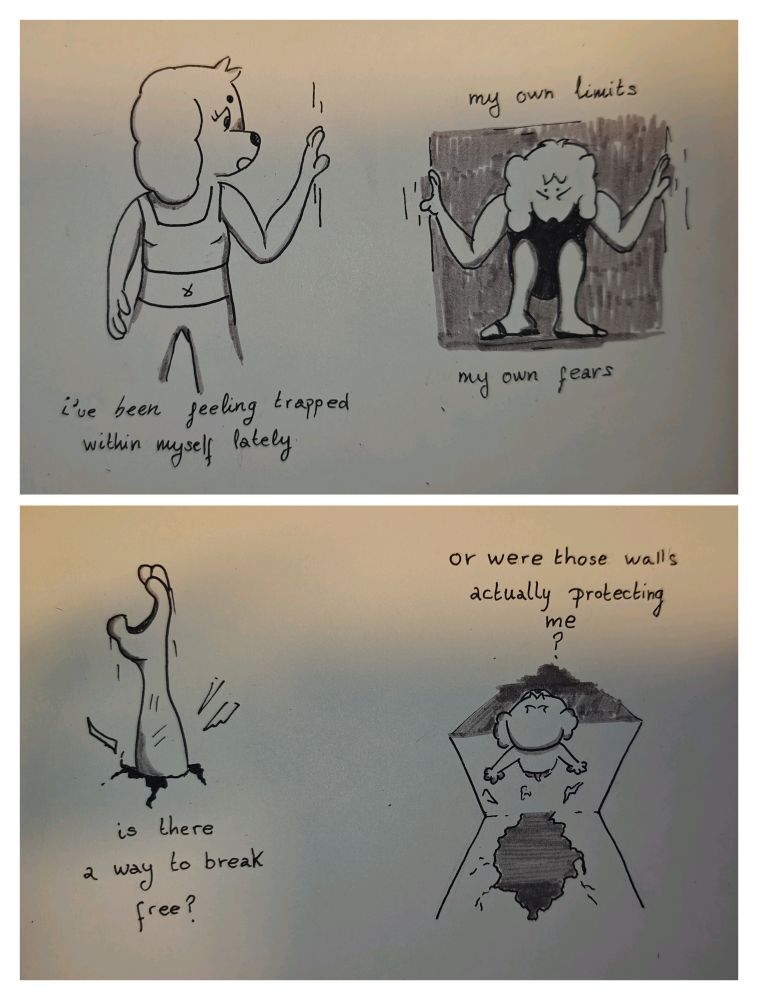 i've been feeling trapped
within myself lately
my own limits
my own fears
is there
a way to break
free?
or were those walls
actually protecting
me
?